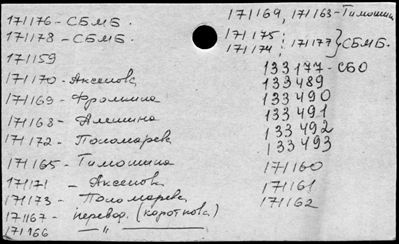 171176 - СБМБ.
171178 - СБМБ.
171159
171170 - Аксенова
171169 - Фролкина
171168 - Алешина
171172 - Пономарева
171165 - Тимошина
171171 - Аксенова
171173 - Пономарева
171167 - перевод. (короткова)
171166 - „ -
171164, 171163 - Тимошина
171175;
171174; 171177} СБМБ.
133477 - СБО
133489
133490
133491
133492
133493
171160
171161
171162